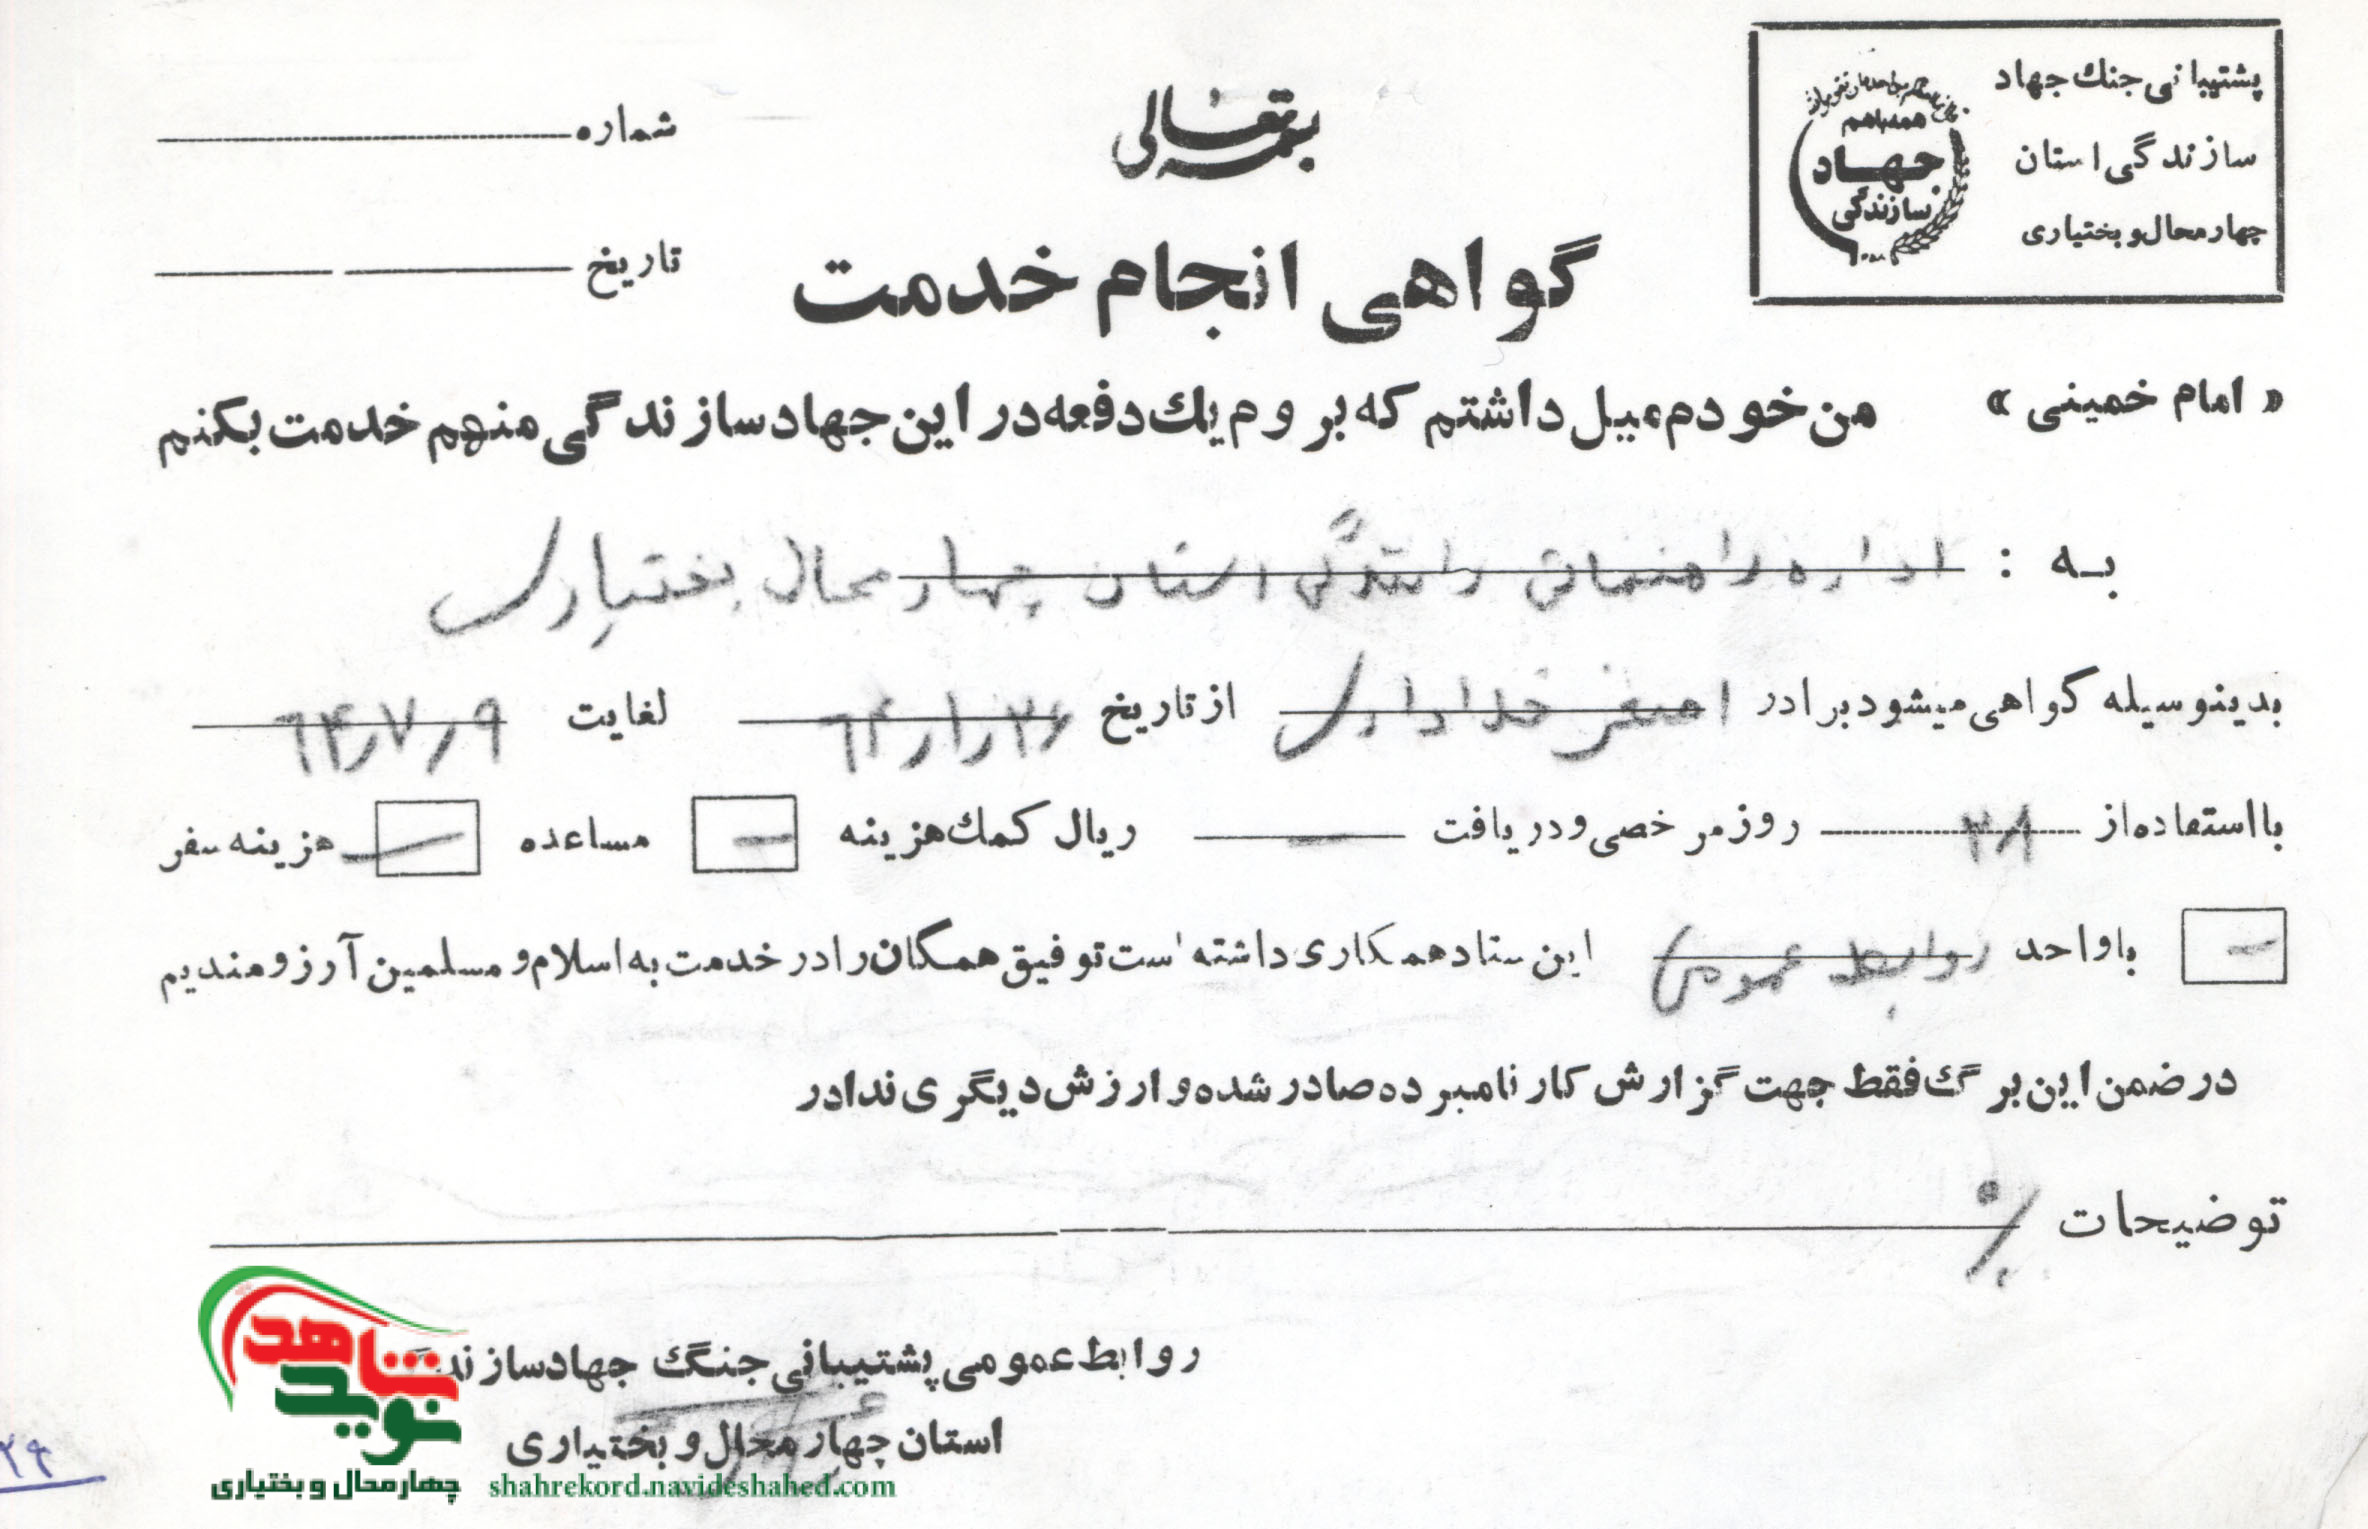 پشتیبانی جنك جهاد
سازندگی استان
چهارمحال و بختیاری
همه باهم
جهاد
سازندگی
بسمه تعالی
شماره
تاریخ
گواهی انجام خدمت
« امام خمینی » من خودم میل داشتم که بروم یك دفعه در این جهاد سازندگی منهم خدمت بکنم
به : اداره راهنمائی رانندگی استان چهار محال بختیاری
بدینوسیله گواهی میشود برادر اصغر خدادادی از تاریخ ۶۴/۱/۲۶ لغایت ۶۴/۷/۹
با استفاده از ۳۸ روز مرخصی و دریافت — ریال کمك هزینه — مساعده — هزینه سفر
— با واحد روابط عمومی این ستاد همکاری داشته است توفیق همگان را در خدمت به اسلام و مسلمین آرزومندیم
در ضمن این برگ فقط جهت گزارش کار نامبرده صادر شده و ارزش دیگری ندادر
توضیحات
روابط عمومی پشتیبانی جنگ جهاد سازندگی
استان چهار محال و بختیاری
نوید شاهد
چهارمحال و بختیاری
shahrekord.navideshahed.com
۲۹